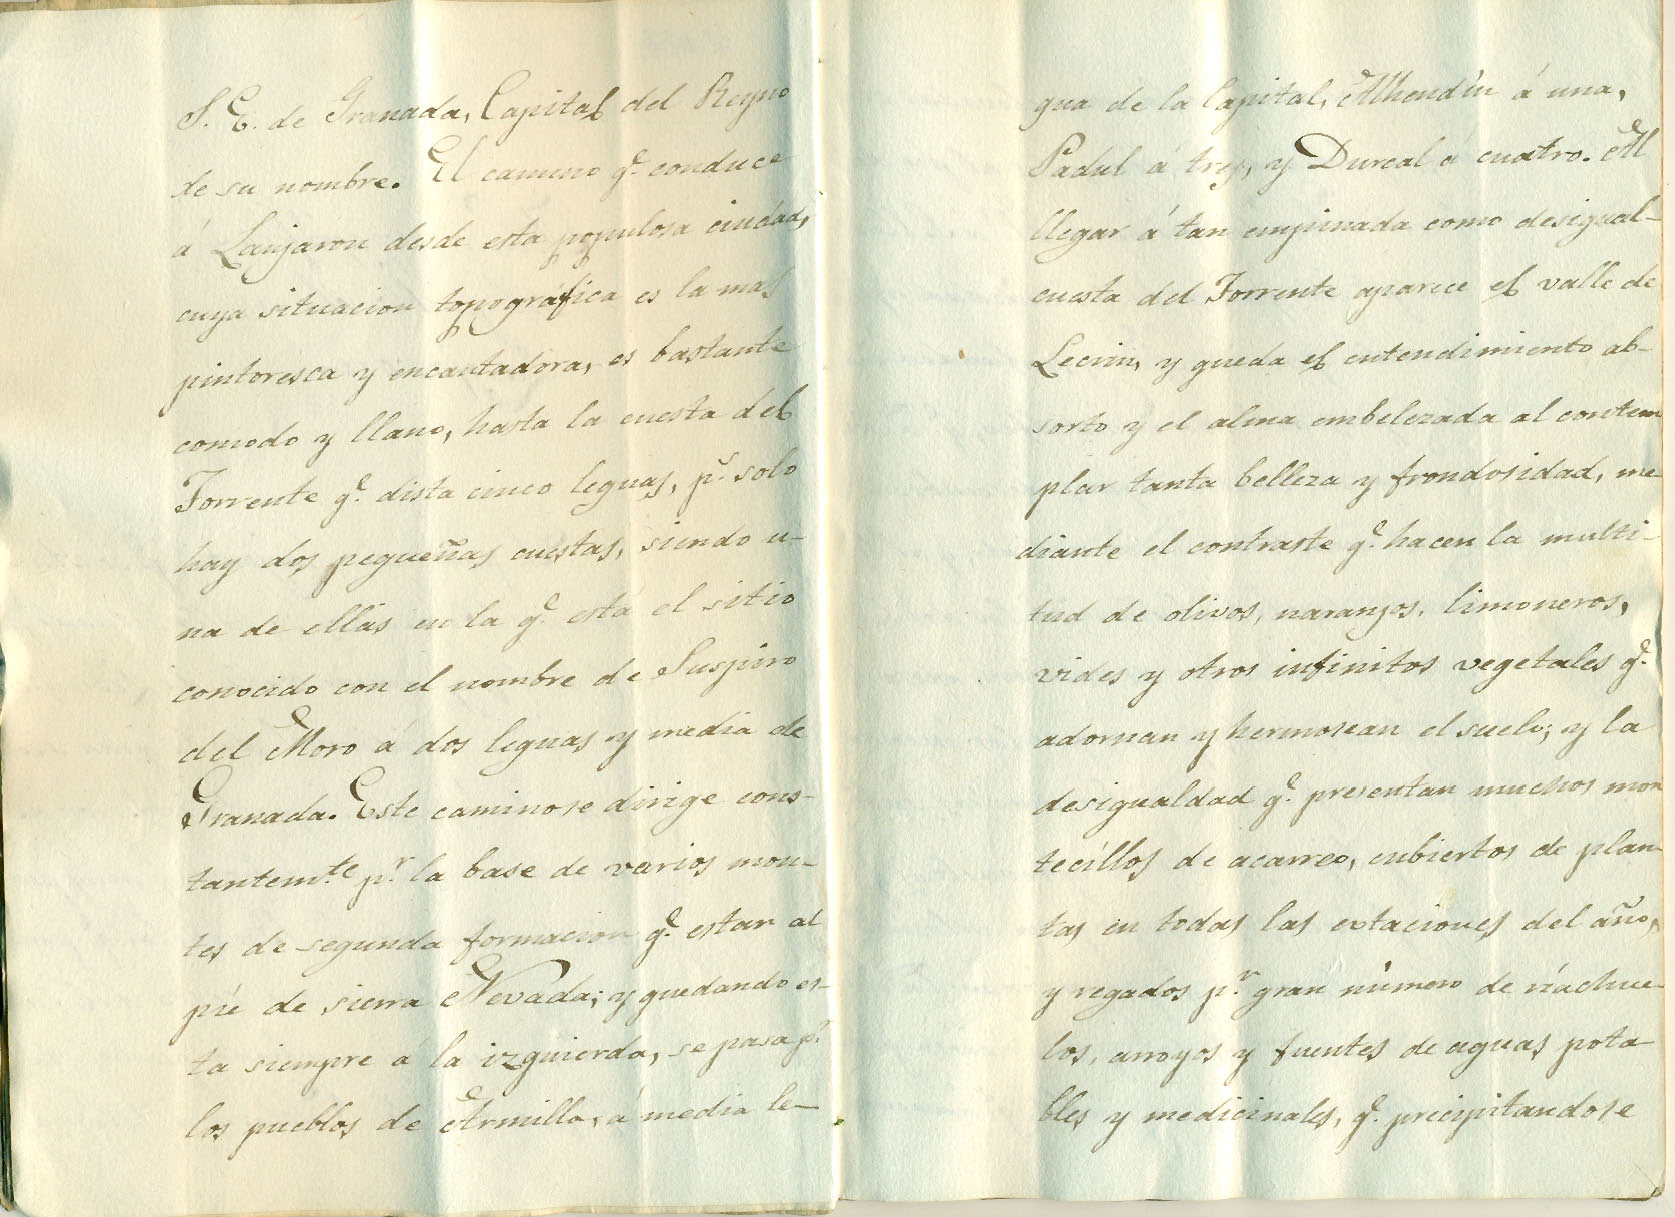 S. E. de Granada, Capital del Reyno
de su nombre. El camino q.e conduce
á Lanjaron desde esta populosa ciudad,
cuya situacion topografica es la mas
pintoresca y encantadora, es bastante
comodo y llano, hasta la cuesta del
Torrente q.e dista cinco leguas, p.s solo
hay dos pequeñas cuestas, siendo u-
na de ellas en la q.e está el sitio
conocido con el nombre de Suspiro
del Moro á dos leguas y media de
Granada. Este camino se dirige cons-
tantem.te p.r la base de varios mon-
tes de segunda formacion q.e estan al
pie de sierra Nevada; y quedando es-
ta siempre á la izquierda, se pasa p.r
los pueblos de Armilla, á media le-
gua de la Capital, Alhendin á una,
Padul á tres, y Durcal á cuatro. Al
llegar á tan empinada como desigual
cuesta del Torrente aparece el valle de
Lecrin, y queda el entendimiento ab-
sorto y el alma embelezada al contem
plar tanta belleza y frondosidad, me-
diante el contraste q.e hacen la multi-
tud de olivos, naranjos, limoneros,
vides y otros infinitos vegetales q.e
adornan y hermosean el suelo; y la
desigualdad q.e presentan muchos mon
tecillos de acarreo, cubiertos de plan-
tas en todas las estaciones del año,
y regados p.r gran número de riachue-
los, arroyos y fuentes de aguas pota-
bles y medicinales, q.e precipitandose